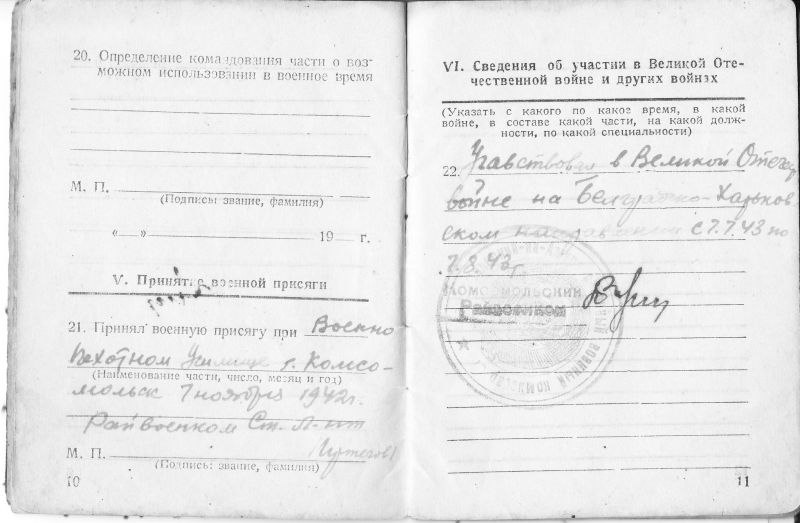 20. Определение командования части о воз-
можном использовании в военное время
М. П.
(Подпись: звание, фамилия)
«—» 19— г.
V. Принятие военной присяги
21. Принял военную присягу при Военно
Пехотном Училище г. Комсо-
(Наименование части, число, месяц и год)
мольск 7 ноября 1942г.
Райвоенком Ст. Л-нт
М. П.
(Подпись: звание, фамилия)
10
VI. Сведения об участии в Великой Оте-
чественной войне и других войнах
(Указать с какого по какое время, в какой
войне, в составе какой части, на какой долж-
ности, по какой специальности)
22. Участвовал в Великой Отечеств
войне на Белгородско-Харьков
ском направлении с 7.7.43 по
7.8.43г.
Комсомольский
Райвоенком
11